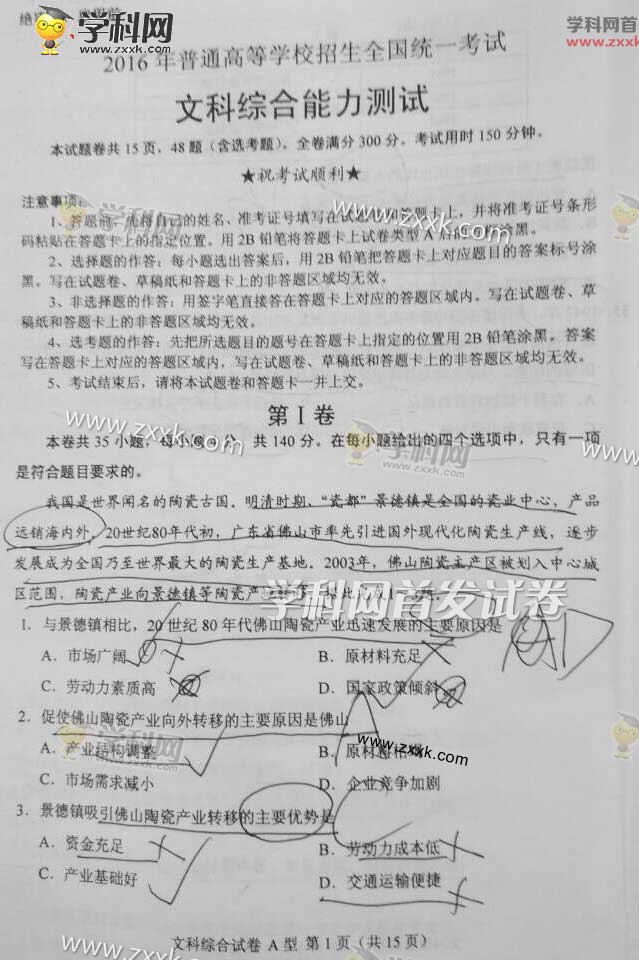 学科网
www.zxxk.com
学科网
www.zxxk.
2016年普通高等学校招生全国统一考试
文科综合能力测试
本试题卷共15页，48题（含选考题）。全卷满分300分。考试用时150分钟。
★祝考试顺利★
注意事项：
学科网
www.zxxk.com
1、答题前，先将自己的姓名、准考证号填写在试题卷和答题卡上，并将准考证号条形
码粘贴在答题卡上的指定位置。用2B铅笔将答题卡上试卷类型A后的方框涂黑。
2、选择题的作答：每小题选出答案后，用2B铅笔把答题卡上对应题目的答案标号涂
黑。写在试题卷、草稿纸和答题卡上的非答题区域均无效。
3、非选择题的作答：用签字笔直接答在答题卡上对应的答题区域内。写在试题卷、草
稿纸和答题卡上的非答题区域均无效。
4、选考题的作答：先把所选题目的题号在答题卡上指定的位置用2B铅笔涂黑。答案
写在答题卡上对应的答题区域内，写在试题卷、草稿纸和答题卡上的非答题区域均无效。
5、考试结束后，请将本试题卷和答题卡一并上交。
www.zxxk.com
第Ⅰ卷
本卷共35小题，每小题 分，共140分。在每小题给出的四个选项中，只有一项
是符合题目要求的。
学科网
zxxk.com
我国是世界闻名的陶瓷古国。明清时期，“瓷都”景德镇是全国的瓷业中心，产品
远销海内外。20世纪80年代初，广东省佛山市率先引进国外现代化陶瓷生产线，逐步
发展成为全国乃至世界最大的陶瓷生产基地。2003年，佛山陶瓷主产区被划入中心城
区范围，陶瓷产业向景德镇等陶瓷产地转移。据此完成1～3题。
学科网首发试卷
1．与景德镇相比，20世纪80年代佛山陶瓷产业迅速发展的主要原因是
A．市场广阔 B．原材料充足
C．劳动力素质高 D．国家政策倾斜
2．促使佛山陶瓷产业向外转移的主要原因是佛山
A．产业结构调整 B．原材料枯
C．市场需求减小 D．企业竞争加剧
学科网
www.zxxk.com
www.zxxk.com
3．景德镇吸引佛山陶瓷产业转移的主要优势是
A．资金充足 B．劳动力成本低
C．产业基础好 D．交通运输便捷
文科综合试卷 A型 第1页（共15页）
www.zxxk.com
学科网